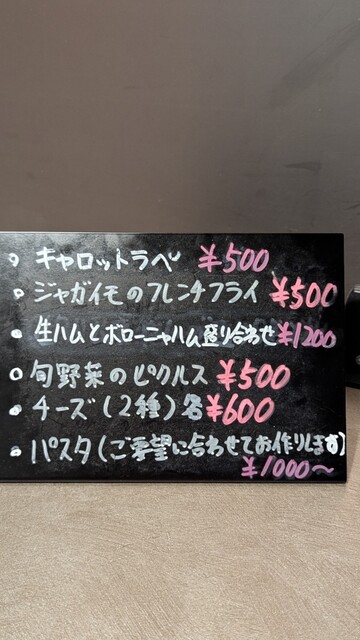 キャロットラペ ¥500
ジャガイモのフレンチフライ ¥500
生ハムとボローニャハム盛り合わせ ¥1200
旬野菜のピクルス ¥500
チーズ(2種)各 ¥600
パスタ(ご要望に合わせてお作りします)
¥1000〜